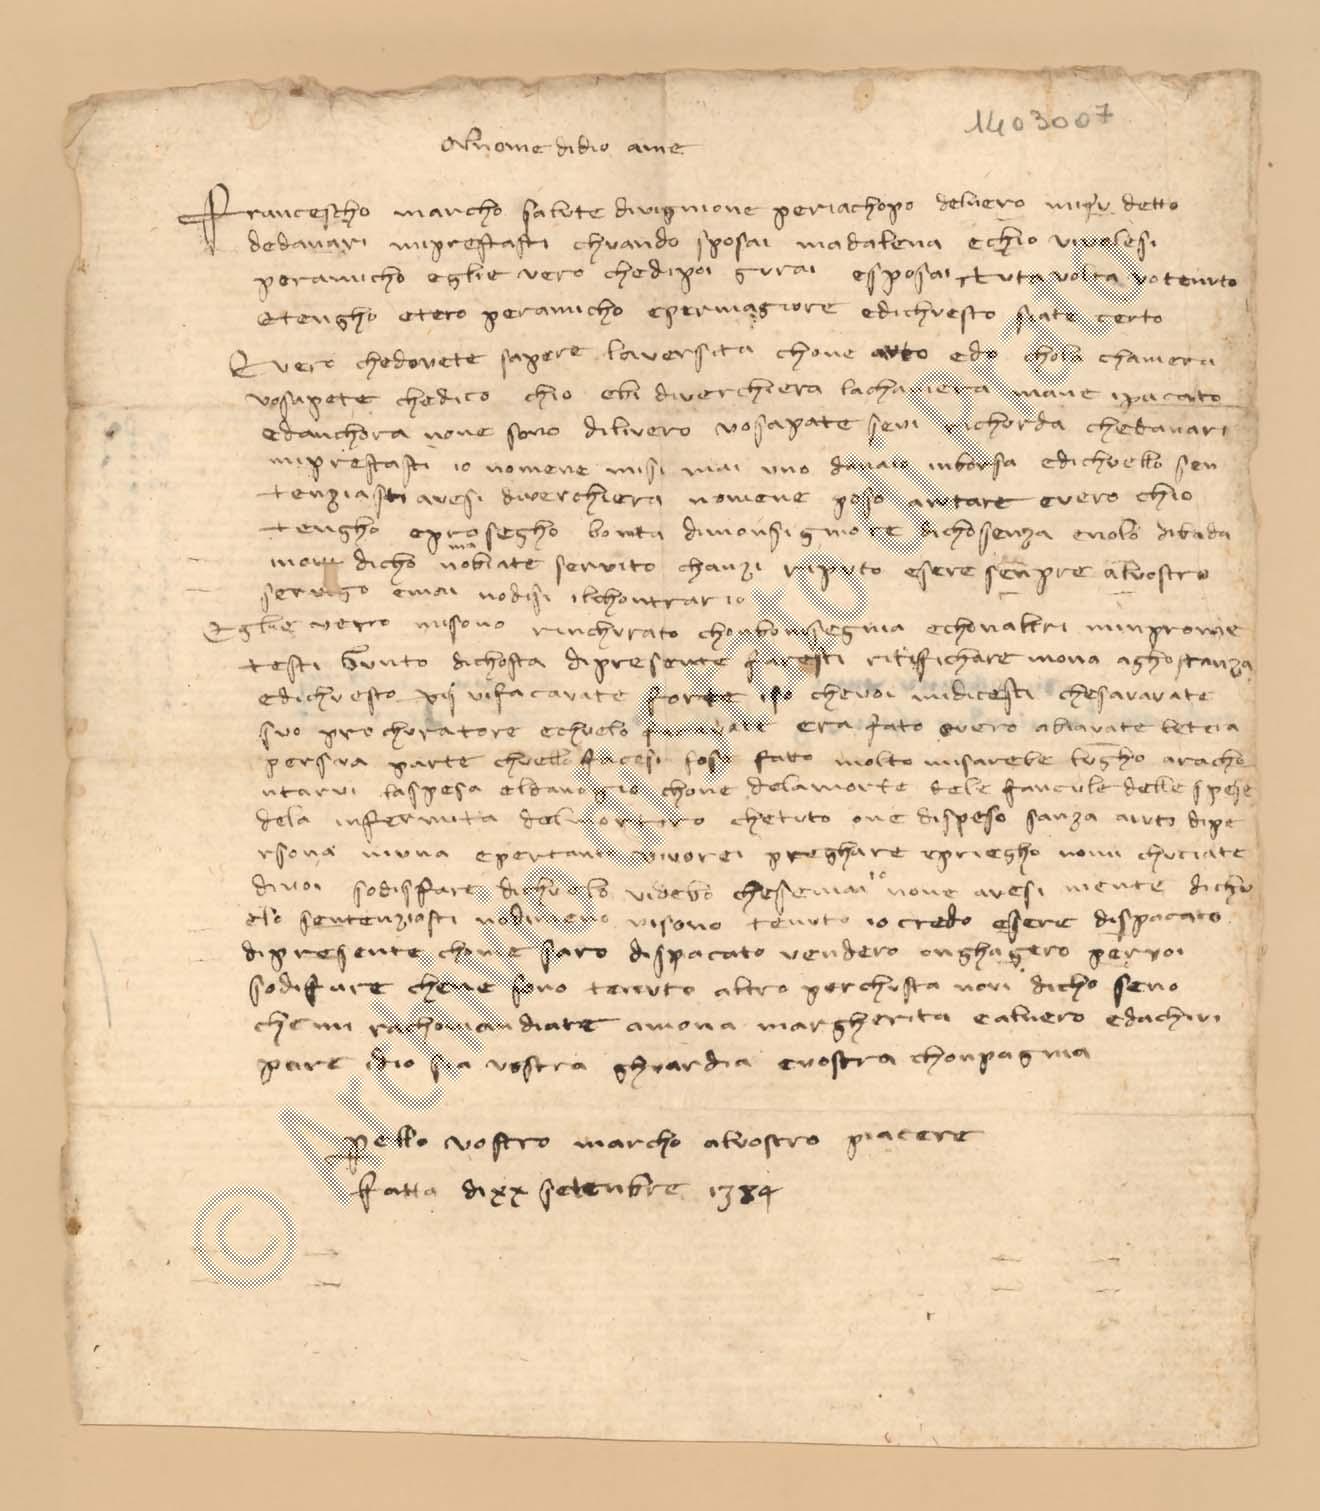 1403007
Al nome di dio ame
Francescho marcho salute divigmone periachopo deluero
dedanari miprestasti chuando sposai madalena echio vivolesi
peramicho eglie vero chedipoi gurai esposai tuta volta votenuto
etengho etero peramicho epermagiore edichuesto siate certo
Evero chedovete sapere laversita chone auto edo chola chamera
vosapete chedico chio ebi diverchiera lachamera mane ispacato
edanchora none sono dilivero vosapate sevi richorda chedanari
miprestasti io nomene misi mai uno danaio inborsa edichuello sen
tenziasti avesi diverchiera nomene poso aiutare evero chio
tengho eprosegho bonta dimonsignore dichosenza enolo dibada
dicho noma abiate servito chanzi riputo esere senpre alvostro
servigo emai nodisi ilchontrario
Eglie vero misono rinchurato chonbonisegnia echonaltri minprome
testi gunto dichosta dipresente faresti ritifichare mona aghostanza
edichuesto vifacavate forte chevoi midicesti chesavavate
suo prochuratore echuelo era fato overo abiavate letera
persua parte chuello facesi fose fato molto misarebe lugho aracho
ntarvi laspesa eldanagio chone delamorte dele fanciule delle spese
dela infermita delmortoro chetuto one dispeso sanza aiuto dipe
rsona niuna epertanto vivorei preghare epriegho nomi chuciate
divoi sodisfare dichuelo videbo chesemai io none avesi niente dichu
elo sentenziasti nodimeno visono tenuto io credo esere dispacato
dipresente chome saro dispacato vendero onghagero pervoi
sodifare chene sono tenuto altro perchusta non dicho seno
chemi rachomandiate amona margherita ealuero edachivi
pare idio sia vostra ghuardia evostra chonpagnia
Pello vostro marcho alvostro piacere
fatta dixx setenbre 1384
© Archivio di Stato di Prato